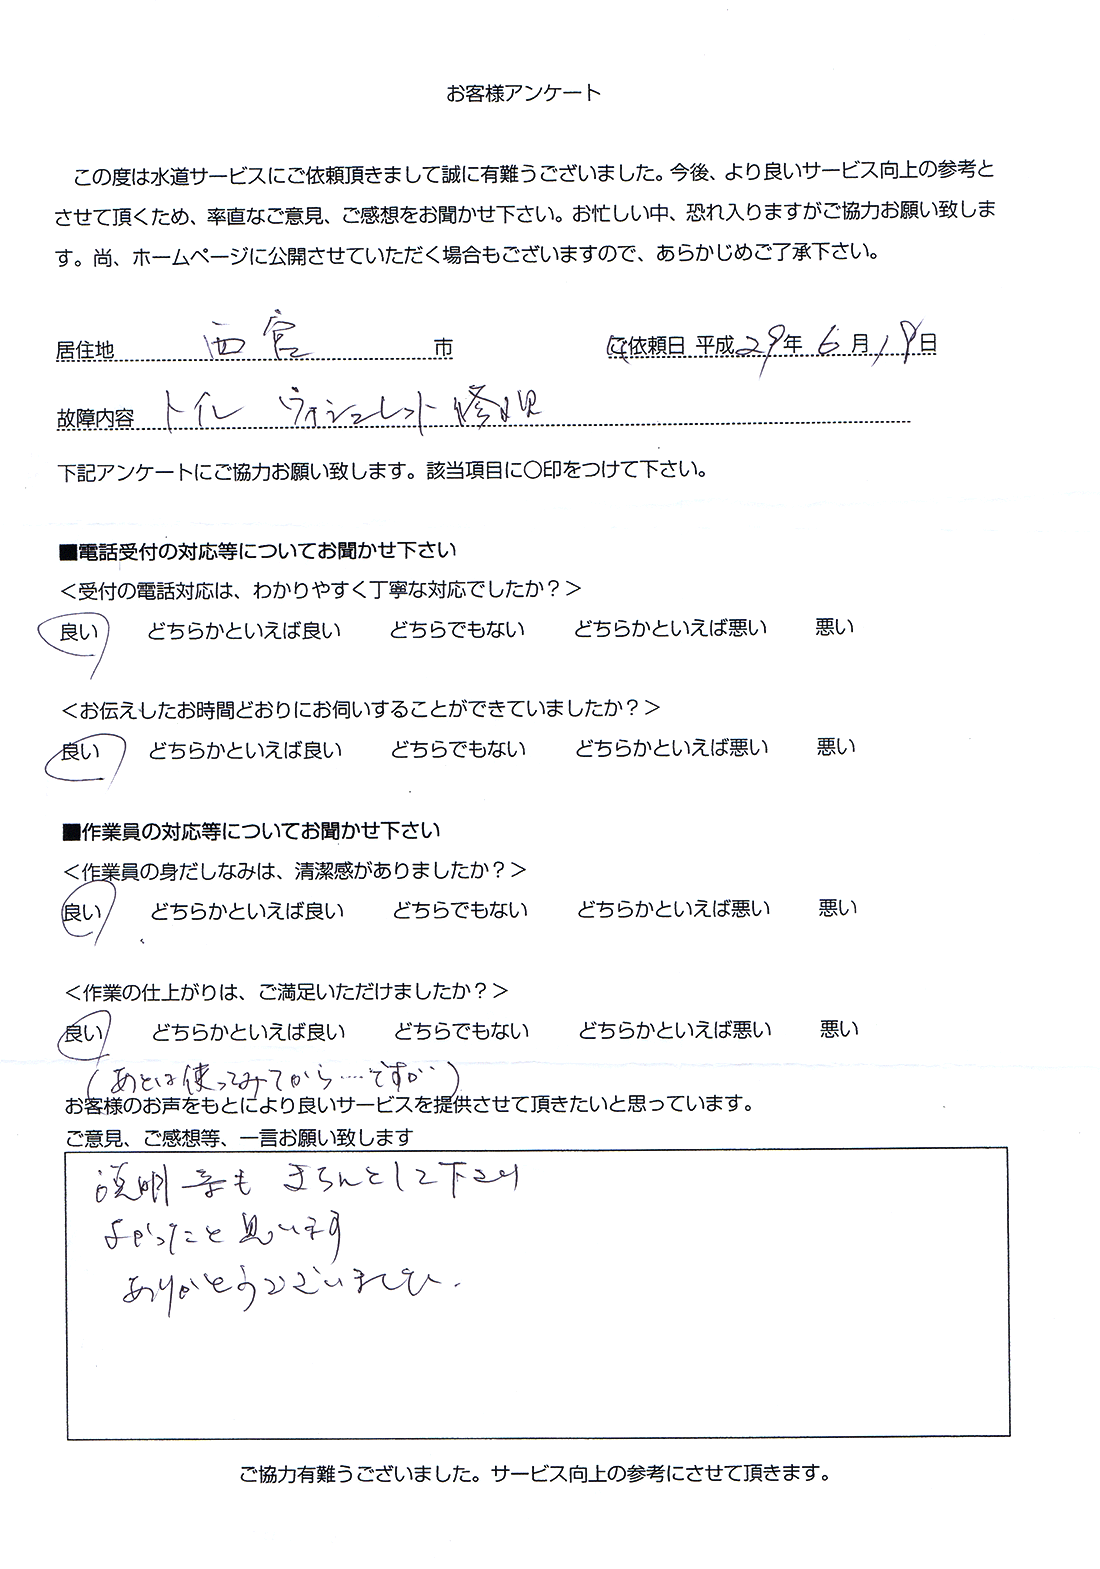 お客様アンケート
この度は水道サービスにご依頼頂きまして誠に有難うございました。今後、より良いサービス向上の参考と
させて頂くため、率直なご意見、ご感想をお聞かせ下さい。お忙しい中、恐れ入りますがご協力お願い致しま
す。尚、ホームページに公開させていただく場合もございますので、あらかじめご了承下さい。
居住地 西宮 市 ご依頼日 平成29年6月19日
故障内容 トイレ ウォシュレット修理
下記アンケートにご協力お願い致します。該当項目に〇印をつけて下さい。
■電話受付の対応等についてお聞かせ下さい
＜受付の電話対応は、わかりやすく丁寧な対応でしたか？＞
良い どちらかといえば良い どちらでもない どちらかといえば悪い 悪い
＜お伝えしたお時間どおりにお伺いすることができていましたか？＞
良い どちらかといえば良い どちらでもない どちらかといえば悪い 悪い
■作業員の対応等についてお聞かせ下さい
＜作業員の身だしなみは、清潔感がありましたか？＞
良い どちらかといえば良い どちらでもない どちらかといえば悪い 悪い
＜作業の仕上がりは、ご満足いただけましたか？＞
良い どちらかといえば良い どちらでもない どちらかといえば悪い 悪い
(あとは使ってみてから…ですが)
お客様のお声をもとにより良いサービスを提供させて頂きたいと思っています。
ご意見、ご感想等、一言お願い致します
説明等も きちんとして下さり
よかったこと思います
ありがとうございました.
ご協力有難うございました。サービス向上の参考にさせて頂きます。